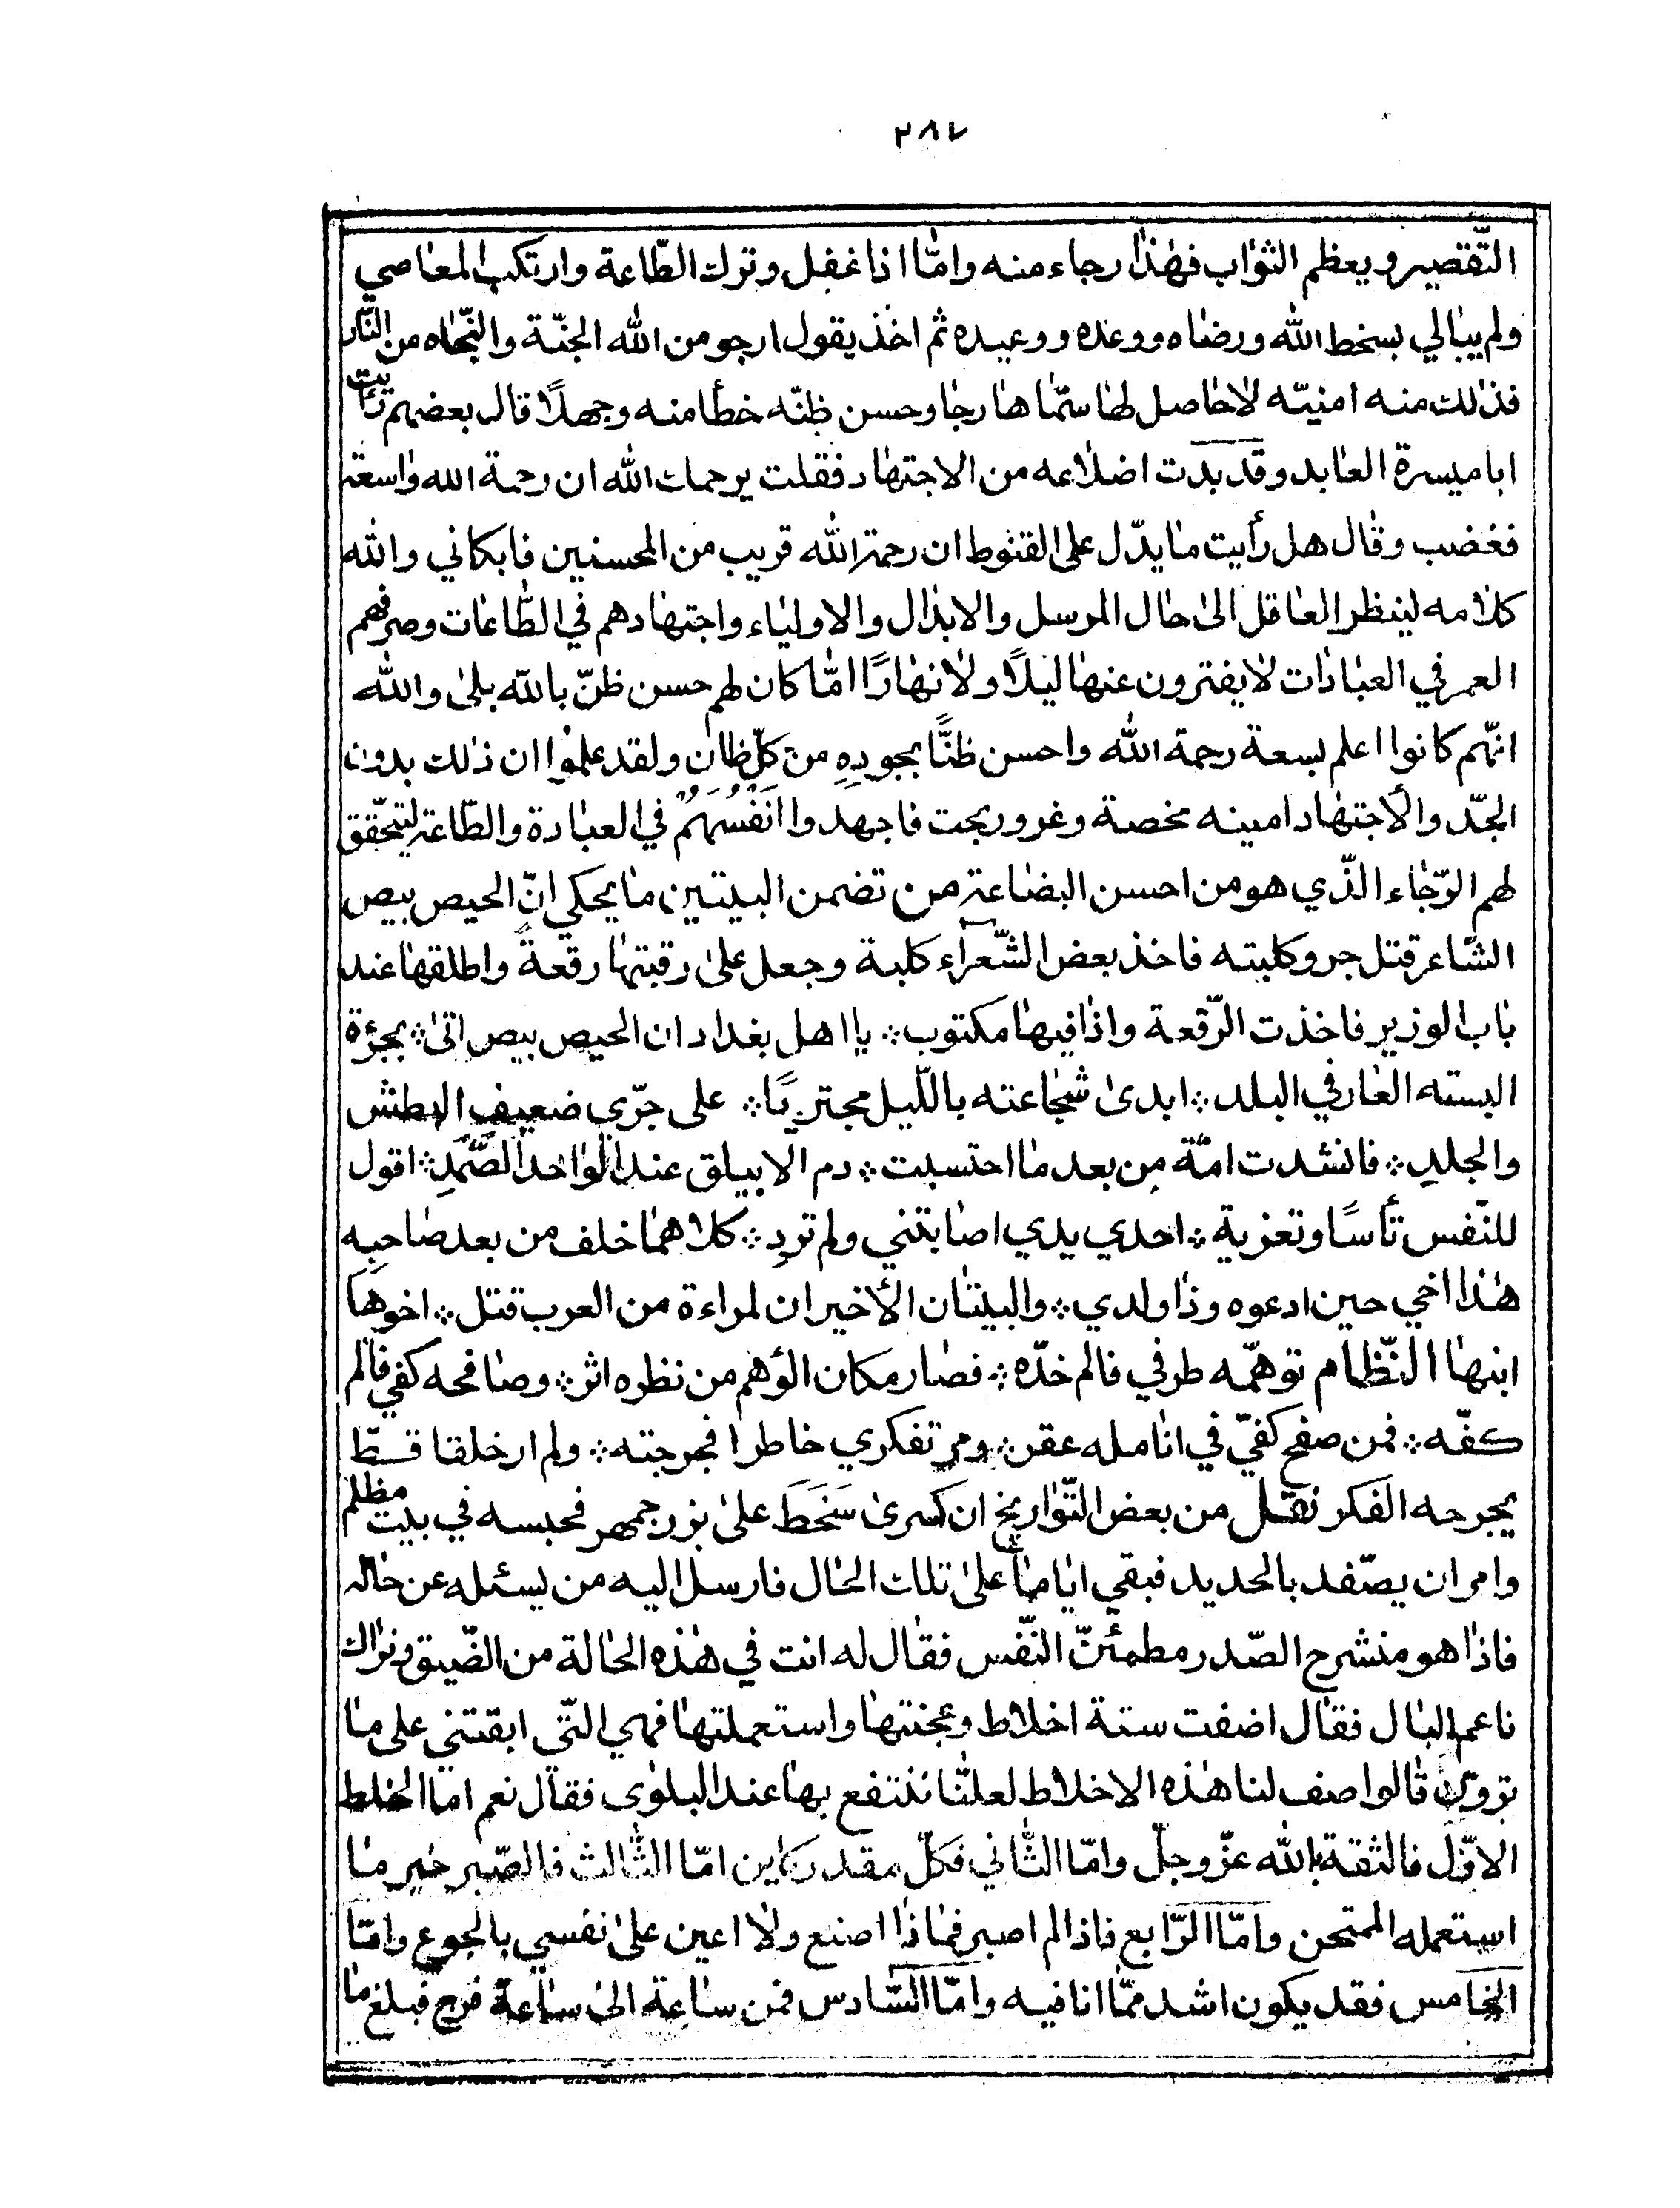 ٢٨٧
التّقصير ويعظم الثواب فهذا رجاء منه وامّا اذا غفل وترك الطّاعة وارتكب المعاصي
ولم يبالي بسخط الله ورضاه ووعده ووعيده ثم اخذ يقول ارجو من الله الجنّة والنّجاه من النّار
فذلك منه امنيّه لا حاصل لها سمّاها رجا وحسن ظنّه خطأ منه وجهلاً قال بعضهم رأيت
ابا ميسرة العابد وقد بدت اضلاعه من الاجتهاد فقلت يرحمك الله ان رحمة الله واسعة
فغضب وقال هل رأيت ما يدّل على القنوط ان رحمة الله قريب من المحسنين فابكاني والله
كلامه لينظر العاقل الى حال المرسل والابدال والاولياء واجتهادهم في الطّاعات وصرفهم
العمر في العبادات لا يفترون عنها ليلاً ولا نهارًا امّا كان لهم حسن ظنّ بالله بلى والله
انّهم كانوا اعلم بسعة رحمة الله واحسن ظنًّا بجوده من كلّ ظان ولقد علموا ان ذلك بدون
الجّد والاجتهاد امينه مخصة وغرور بحت فاجهدوا انفسهم في العبادة والطّاعة ليتحّقق
لهم الرّجاء الذّي هو من احسن البضاعة من تضمن البيتين ما يحكي انّ الحيص بيص
الشّاعر قتل جرو كلبته فاخذ بعض الشّعراء كلبة وجعل على رقبتها رقعة واطلقها عند
باب الوزير فاخذت الرّقعة واذا فيها مكتوب ؞ يا اهل بغداد ان الحيص بيص اتى ؞ بجرْة
البسته العار في البلد ؞ ابدى شجاعته بالّليل مجتريًا ؞ على جرّى ضعيف البطش
والجلدِ ؞ فانشدت امّة من بعد ما احتسبت ؞ دم الابيلق عند الواحد الصَّمَدِ ؞ اقول
للنّفس تأسًا وتعزية ؞ احدي يدي اصابتني ولم تردِ ؞ كلاهما خلف من بعد صاحبِه
هذا اخي حين ادعوه وذا ولدي ؞ والبيتان الأخيران لمراءة من العرب قتل ؞ اخوها
ابنها النّظام توهمّه طرفي فالم خدّه ؞ فصار مكان الوْهم من نظره اثر ؞ وصافحه كفي فالم
كفّه ؞ فمن صفح كفيّ في انامله عقر ؞ ومر تفكري خاطرا فجرحته ؞ ولم ار خلقا قطّ
يجرحه الفكر نقل من بعض التّواريخ ان كسرى سَخَطَ على بزرجمهر فحبسه في بيت مظلم
وامر ان يصّفد بالحديد فبقي اياما على تلك الحال فارسل اليه من يسئله عن حاله
فاذا هو منشرح الصّدر مطمئنّ النّفس فقال له انت في هذه الحالة من الضّيق ونراك
ناعم البال فقال اضفت ستة اخلاط وعجنتها واستعملتها فهي التّي ابقتني على ما
تروون قالوا صف لنا هذه الاخلاط لعلنّا ننتفع بها عند البلوى فقال نعم اما الخلط
الاوّل فالثقة بالله عزّ وجلّ وامّا الثّاني فكلّ مقدر كاين امّا الثّالث فالصّبر خير ما
استعمله الممتحن وامّا الرّابع فاذا لم اصبر فماذا اصنع ولا اعين على نفسي بالجوع وامّا
الخامس فقد يكون اشد ممّا انا فيه وامّا السّادس فمن ساعة الى ساعة فرج فبلغ ما